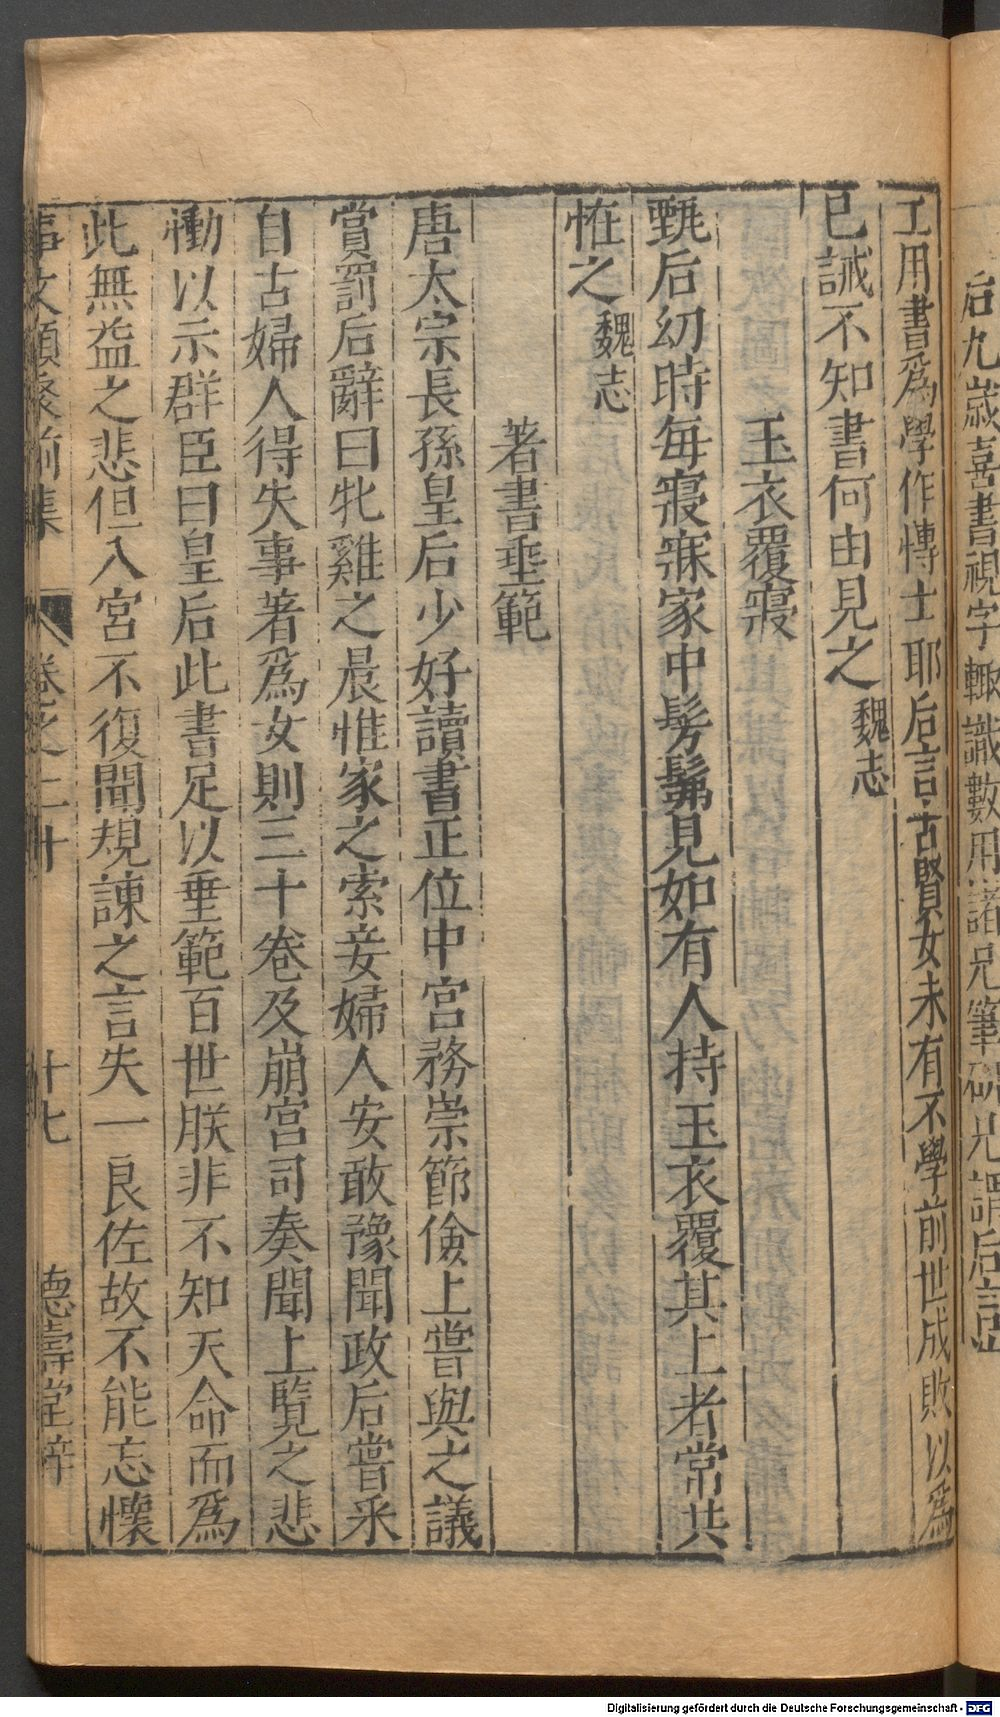 后九歲喜書視字輙識數用諸兄筆硯兄謂后言
工用書爲學作愽士耶后言古賢女未有不學前世成敗以爲
已誡不知書何由見之 魏志
玉衣覆寢
甄后幼時毎寢寐家中髣髴見如有人持玉衣覆其上者常共
恠之 魏志
著書垂範
唐太宗長孫皇后少好讀書正位中宮務崇節儉上嘗與之議
賞罰后辭曰牝雞之晨惟家之索妾婦人安敢豫聞政后嘗采
自古婦人得失事著爲女則三十卷及崩宮司奏聞上覽之悲
慟以示群臣曰皇后此書足以垂範百世朕非不知天命而爲
此無益之悲但入宮不復聞規諌之言失一良佐故不能忘懷
事文類聚前集 卷之二十 十七 德壽堂梓
Digitalisierung gefördert durch die Deutsche Forschungsgemeinschaft - DFG